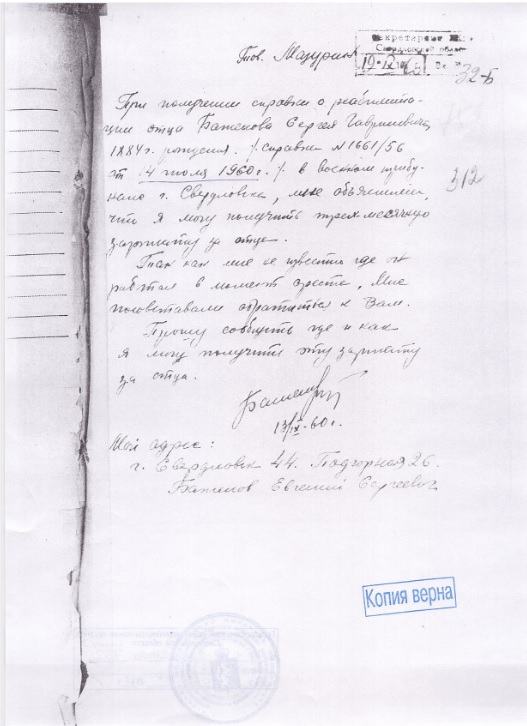 Тов. Мазурин
Секретариат
Свердловской област
32-Б
При получении справки о реабилита-
ции отца Баженова Сергея Гавриловича,
1884г. рождения. /. справка № 1661/56
от 4 июля 1960г. /. в военном трибу-
нале г. Свердловска, мне объяснили,
312
что я могу получить трехмесячную
зарплату за отца.
Так как мне не известно где он
работал в момент ареста, мне
посоветовали обратиться к Вам.
Прошу сообщить где и как
я могу получить эту зарплату
за отца.
60г.
Мой адрес:
г. Свердловск 44. Подгорная 26.
Баженов Евгений Сергеевич
Копия верна